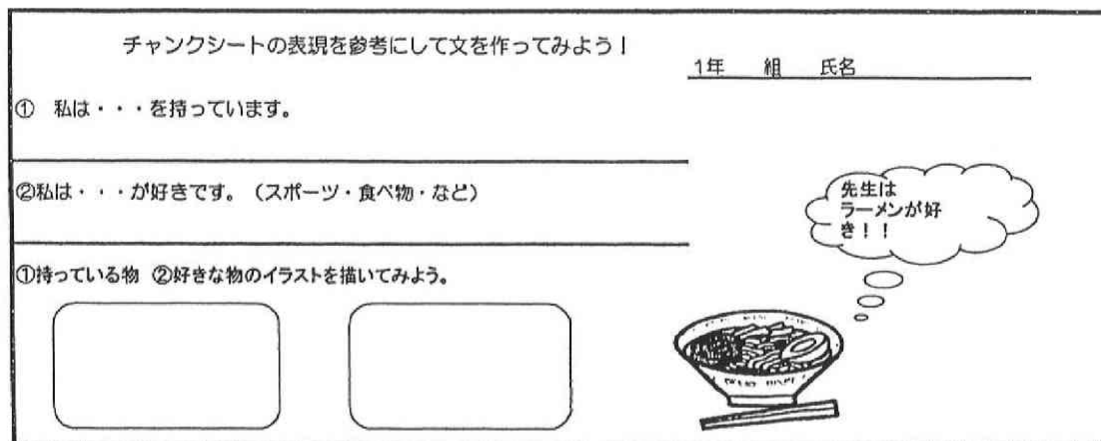 チャンクシートの表現を参考にして文を作ってみよう!
1年 組 氏名
① 私は・・・を持っています。
②私は・・・が好きです。(スポーツ・食べ物・など)
先生は
ラーメンが好
き!!
①持っている物 ②好きな物のイラストを描いてみよう。